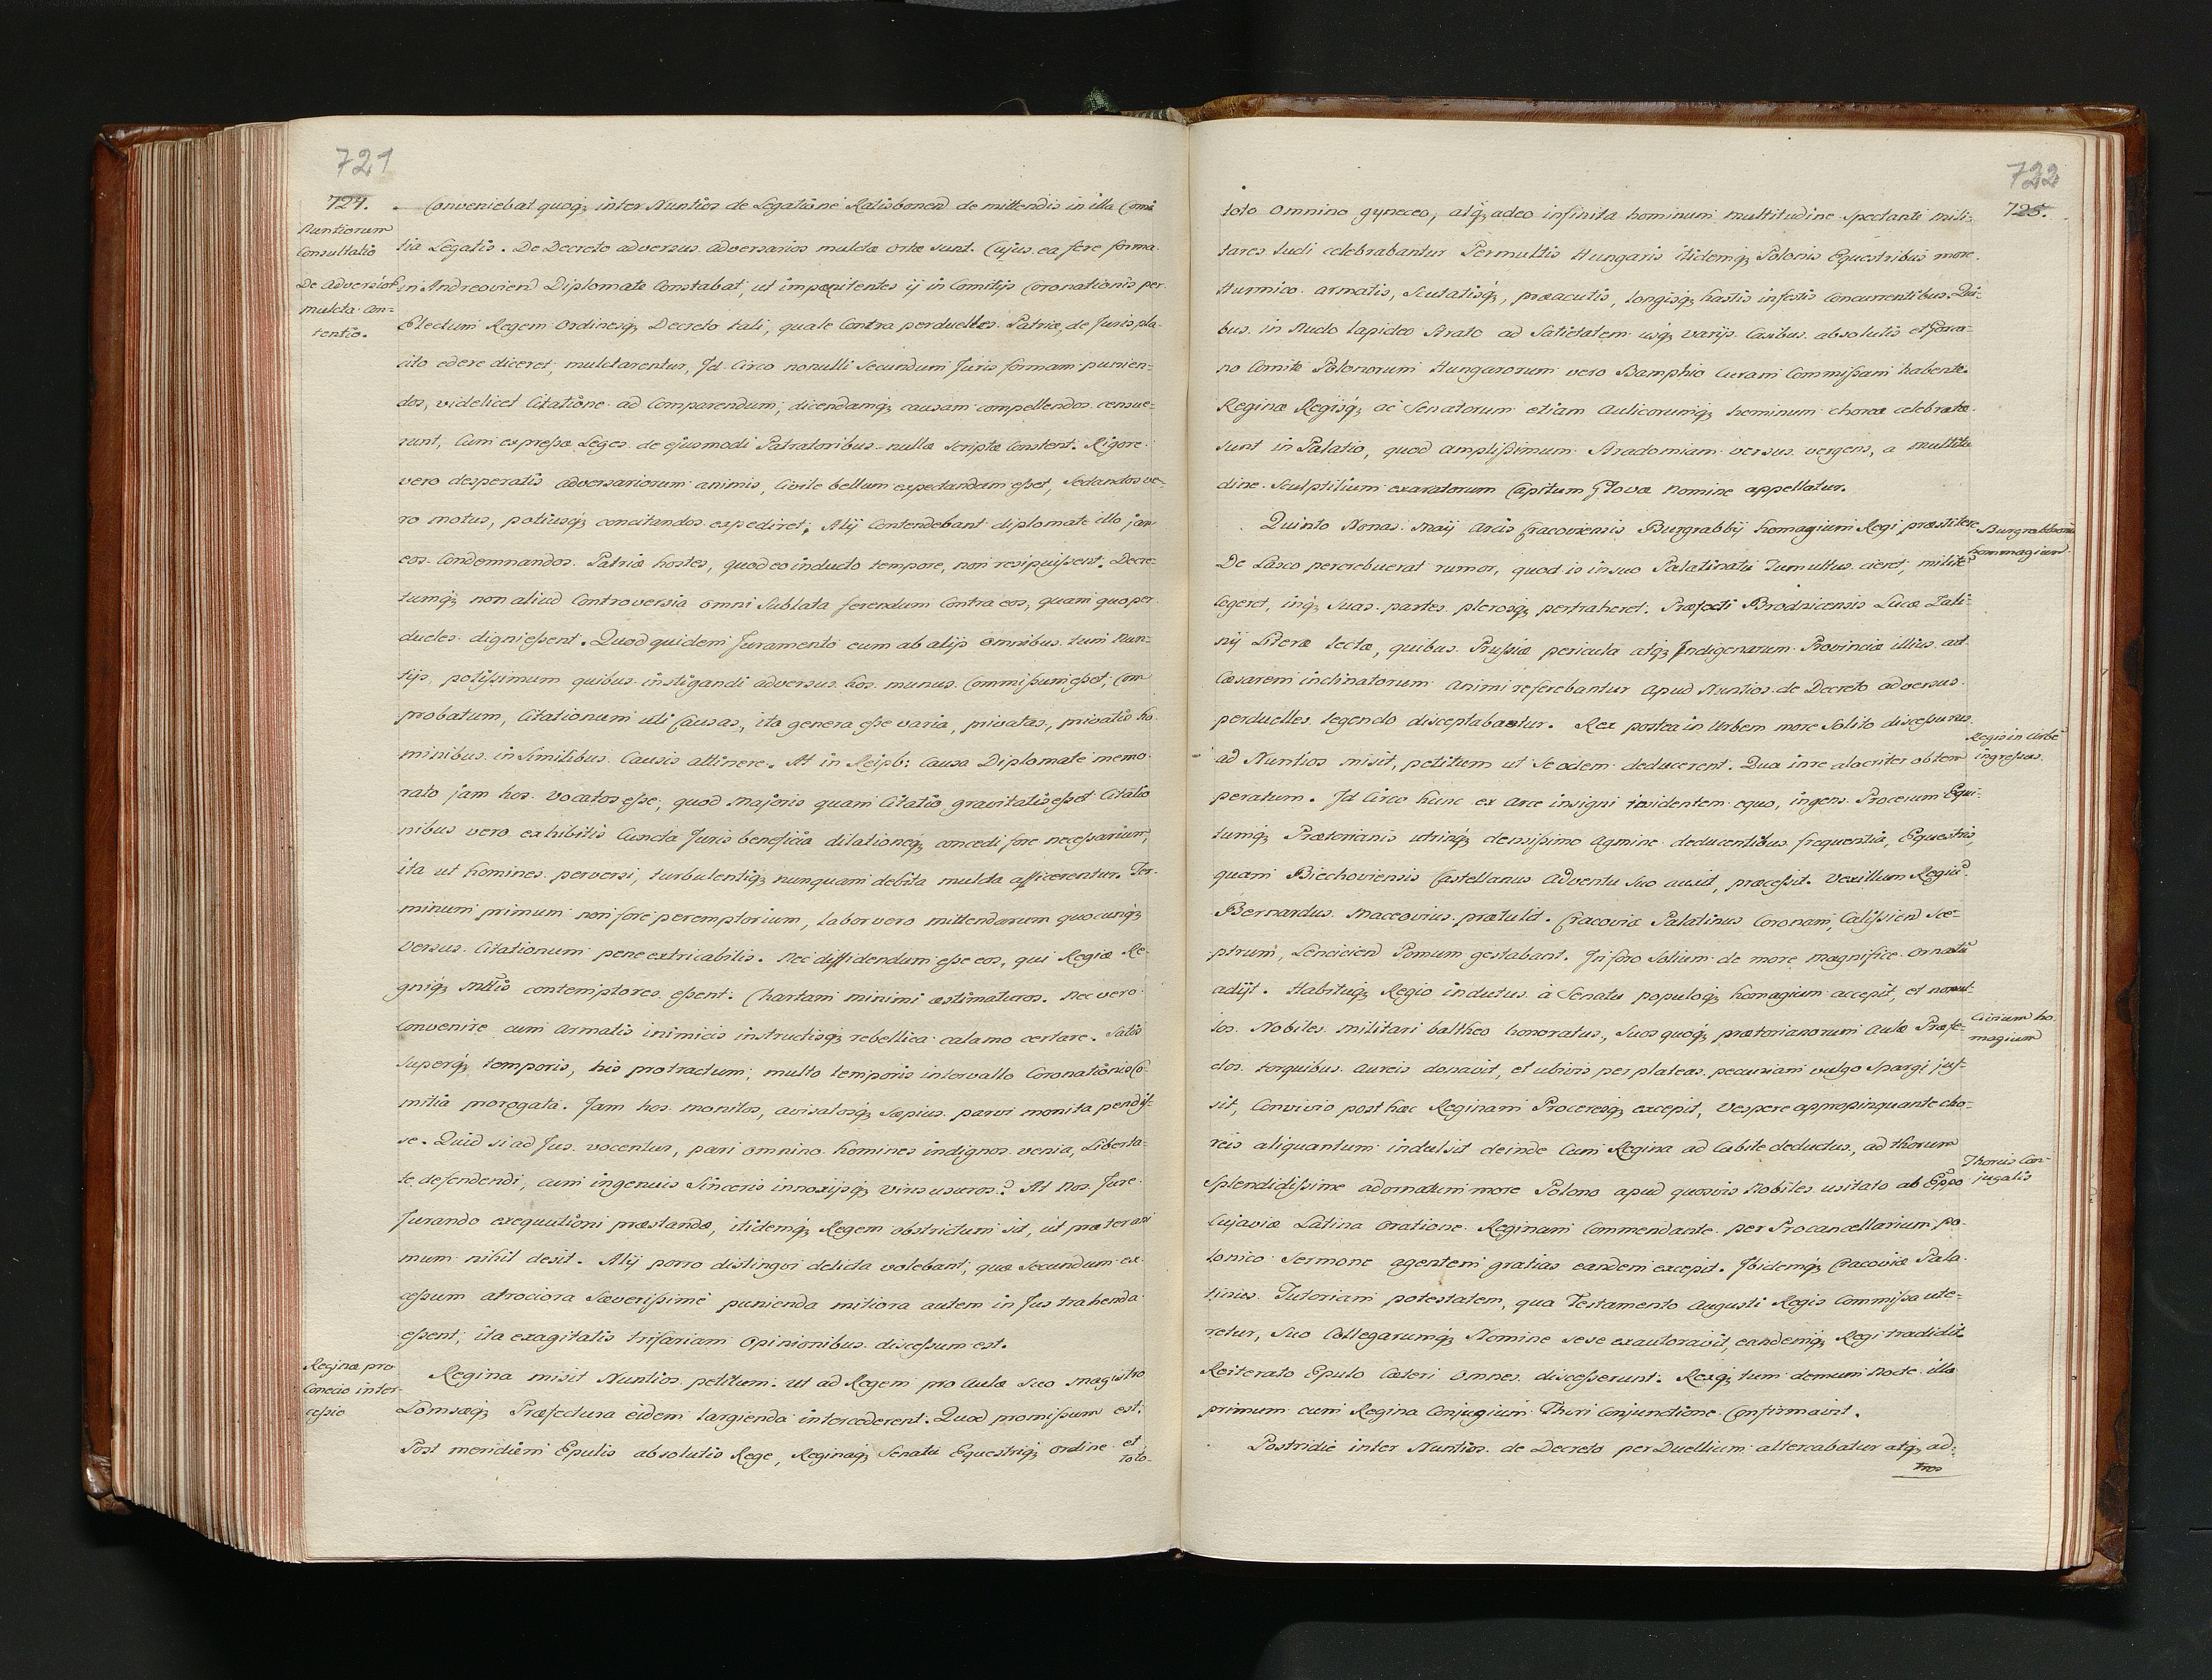 721
727.
Nuntiorum
Consultatio
De adversior̃
mulcta con-
tentio.
Conveniebat quoq; inter Nuntios de Legatione Ratisbonen̄ de mittendis in illa Comi
tia Legatis. De Decreto adversus adversarios mulctæ ortæ sunt. Cujus ea fere forma
in Andreovien̄ Diplomate Constabat, ut impænitentes ij in Comitijs Coronationis per
Electum Regem Ordinesq; Decreto tali, quale Contra perduelles Patriæ, de Juris pla-
cito edere diceret, mulctarentur, Id Circo nonulli Secundum Juris formam punien-
dos, videlicet Citatione ad Comparendum, dicendamq; causam compellendos censue-
runt, Cum expreßæ Leges de ejusmodi Patratoribus nullæ Scriptæ Constent. Rigore
vero desperatis adversariorum animis, Civile bellum expectandum eßet, Sedandos ve-
ro motus, potiusq; concitandos expediret; Alij Contendebant diplomate illo jam
eos Condemnandos Patriæ hostes, quod eo inducto tempore, non resipuißent. Decre-
tumq; non aliud Controversia omni Sublata ferendum Contra eos, quam quo per
dueles digni eßent. Quod quidem Juramento eum ab alijs Omnibus tum Nun-
tijs, potißimum quibus instigandi adversus hos munus Commißum eßet, Com
probatum, Citationum uti Causas, ita genera eße varia, privatas, privatis ho
minibus in Similibus Causis attinere. At in Reipb: Causa Diplomate memo
rato jam hos Vocatos eße, quod majoris quam Citatio gravitatis eßet Citatio
nibus vero exhibitis Cuncta Juris beneficia dilationeq; concedi fore neceßarium,
ita ut homines perversi, turbulentiq; nunquam debita mulcta afficerentur. Ter-
minum primum non fore peremptorium, labor vero mittendarum quocunq;
versus Citationum pene extricabilis. Nec diffidendum eße eos, qui Regiæ Re-
gniq; Mttis contemptores eßent. Chartam minimi æstimaturos. Nec vero
Convenire cum armatis inimicis instructisq; rebellica calamo certare. Satis
superq; temporis, his protractum, multo temporis intervallo Coronationis Co-
mitia prorogata. Jam hos monitos, avisatosq; Sæpius parvi monita pendiß-
se. Quid si ad Jus vocentur, pari omnino homines indignos venia, Liberta-
te defendendi, cum ingenuis Sinceris innoxijsq; viris usuros? At Nos Jure
Jurando exequutioni præstandæ, itidemq; Regem obstrictum sit, ut præter ani
mum nihil desit. Alij porro distingvi delicta volebant, quæ Secundum ex-
ceßum atrociora Sæverißime punienda mitiora autem in Jus trahenda
eßent, ita exagitatis trifariam Opinionibus disceßum est.
Reginæ pro
Conecio inter
ceßio
Regina misit Nuntios petitum ut ad Regem pro Aulæ suo Magistro
Lomsæq; Præfectura eidem largienda intercederent. Quod promißum est.
Post meridiem Epulis absolutis Rege, Reginaq; Senatu Equestriq; Ordine et
toto
722
725.
toto Omnino gyneceo, atq; adeo infinita hominum multitudine Spectante mili-
tares Ludi celebrabantur Permultis Hungaris itidemq; Polonis Equestribus more
Hunnico armatis, Scutatisq;, præacutis, longisq; hastis infestis Concurrentibus. Qui-
bus in Nudo lapideo Strato ad Satietatem usq; varijs Casibus absolutis et
no Comite Polonorum Hungarorum vero Bamphio Curam Commißam habente.
Reginæ Regisq; ac Senatorum etiam Aulicorumq; heminum choreæ celebratæ
sunt in Palatio, quod amplißimum Stradomiam versus vergens, a multitu
dine Sculptilium exaratorum Capitum Glova Nomine appellatur.
Quinto Nonas Maij Arcis Cracoviensis Burgrabbij homagium Regi præstitere
Burgrabbiorũ
hommagium
De Lasco percrebuerat rumor, quod is in suo Palatinatu Tumultus cieret, militẽ
cogeret, inq; Suas partes plerosq; pertraheret. Præfecti Brodnicensis Lucæ Zali-
nij Literæ lectæ, quibus Prußiæ pericula atq; Indigenarum Provinciæ illius ad
Cæsarem inclinatorum animi referebantur apud Nuntios de Decreto adversus
perduelles legendo disceptabatur. Rex postea in Urbem more Solito disceßurus
Regis in Urbẽ
ingreßus.
ad Nuntios misit, petitum ut Se eodem deducerent. Qua in re alacriter obtem
peratum. Id Circo hunc ex Arce insigni insidentem equo, ingens Procerum Equi-
tumq; Prætorianis utrinq; densißimo Agmine deducentibus frequentia, Equestris,
quam Biechoviensis Castellanus adventu Suo auxit, præceßit. Vexillum Regiũ
Bernardus Maceovius prætulit. Cracoviæ Palatinus Coronam, Calißien̄ Sce-
ptrum, Lencicien̄ Pomum gestabant. In foro Solium de more magnifice ornatũ
adijt. Habituq; Regio indutus à Senatu populoq; homagium accepit, et nonul-
Civium ho
magium
los Nobiles militari baltheo honoratus, Suos quoq; prætorianorum Aulæ Præfe-
ctos torquibus aureis donavit, et ubivis per plateas pecuniam vulgo Spargi jus-
sit, Convivio post hæc Reginam Proceresq; excepit, Vespere appropinquante cho-
reis aliquantum indulsit deinde Cum Regina ad Cubile deductus, ad thorum
Thorus Con-
jugalis
Splendidißime adornatum more Polono apud quosvis Nobiles usitato ab Eppo
Cujaviæ Latina Oratione Reginam Commendante per Procancellarium po-
lonico Sermone agentem gratias eandem excepit. Ibidemq; Cracoviæ Pala-
tinus Tutoriam potestatem, qua Testamento Augusti Regis Commißa ute-
retur, Suo Collegarumq; Nomine sese exautoravit, eandemq; Regi tradidit
Reiterato Epulo Cæteri omnes disceßerunt. Rexq; tum demum Nocte illa
primum cum Regina Conjugium Thori Conjunctione Confirmavit.
Postridie inter Nuntios de Decreto perDuellium altercabatur atq; ad-